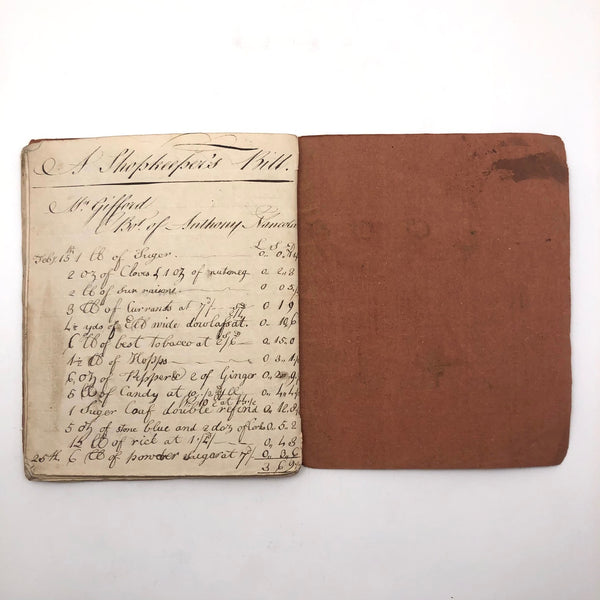 A Shopkeeper's Bill.
Mr Gifford
Bot of Anthony
L S D
Feby 15th 1 lb of Suger 0.
2 oz of Cloves & 1 oz of nutmeg 0 2.8
2 lb of sun raisens 0 0
3 lb of Currands at 7d 0 1 9
yds of Ell wide dowlas at. 0. 10,6
6 lb of best tobacco at 2/6 0. 15.0
1½ lb of Hopps 0. 3.
6 oz of Pepper & 2 of Ginger 0. 9
5 lb of Candy at lb 0. 4.
1 Suger loaf double refind 0. 12.8
5 oz of stone blue and 2 doz of 0. 5.2
lb of rice at 0. 4.8
25th. 6 lb of powder sugar at 7d 0. 6
3 6 9